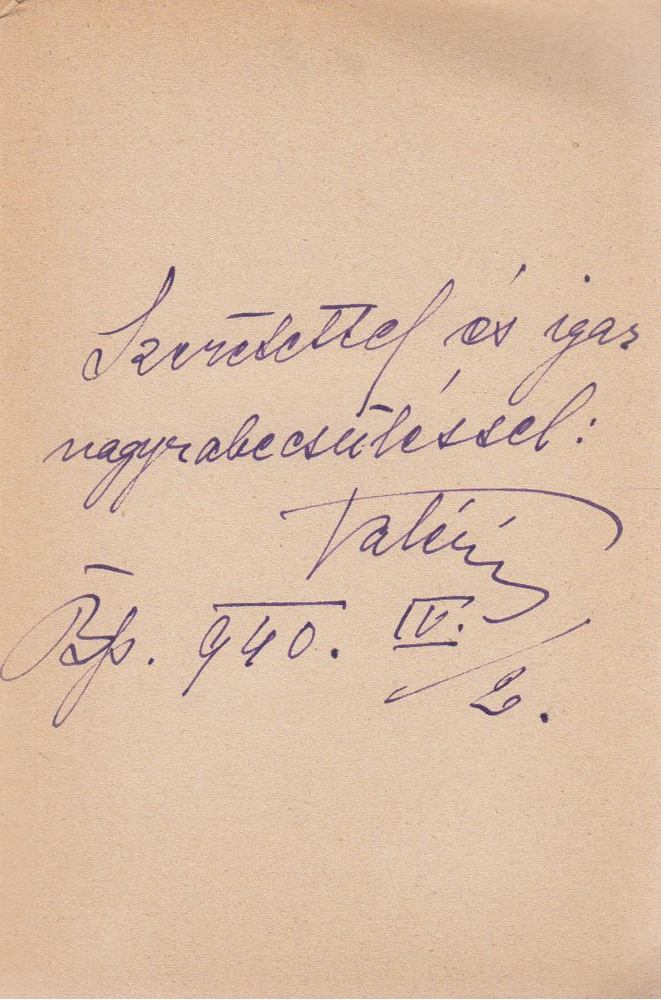 Szeretettel és igaz
nagyrabecsüléssel:
Valéria
Bp. 940. IV./2.